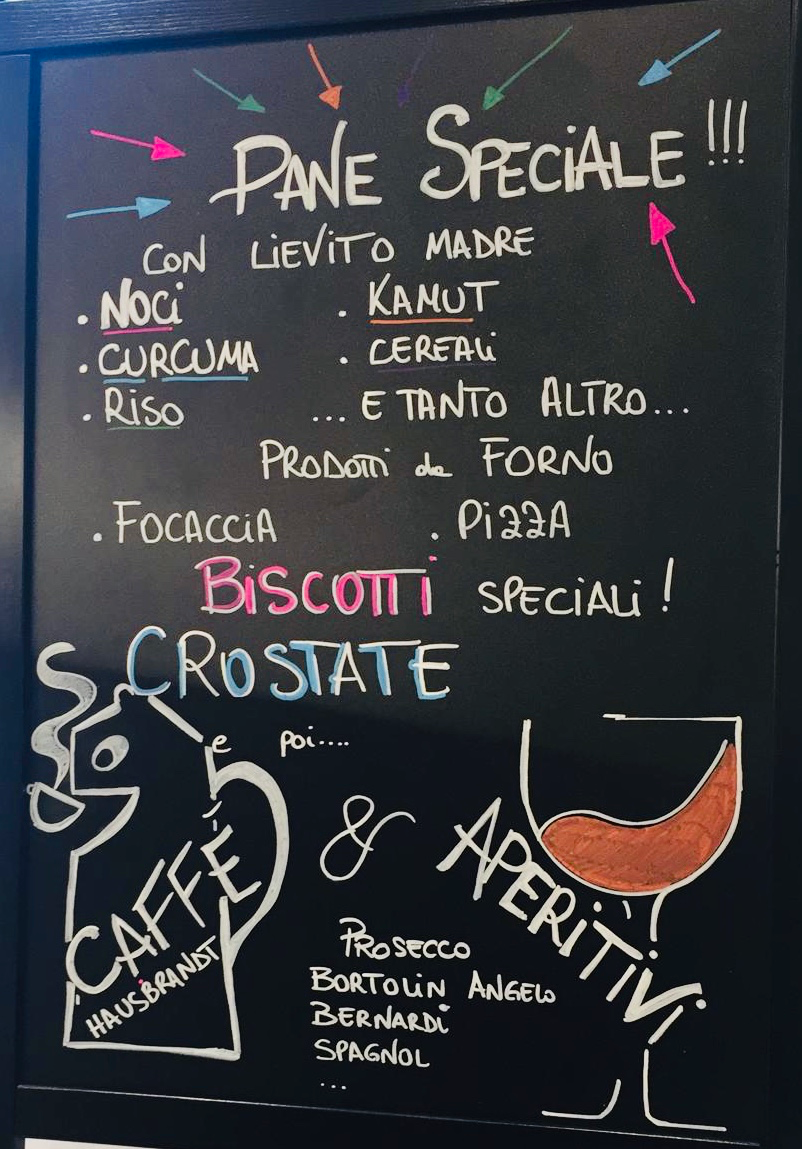 PANE SPECIALE !!!
CON LIEVITO MADRE
. NOCI . KAMUT
. CURCUMA . CEREALI
. RISO ... E TANTO ALTRO...
PRODOTTI da FORNO
. FOCACCIA . PIZZA
BISCOTTI SPECIALI !
CROSTATE
e poi....
CAFFÈ
HAUSBRANDT
&
APERITIVI
PROSECCO
BORTOLIN ANGELO
BERNARDI
SPAGNOL
...